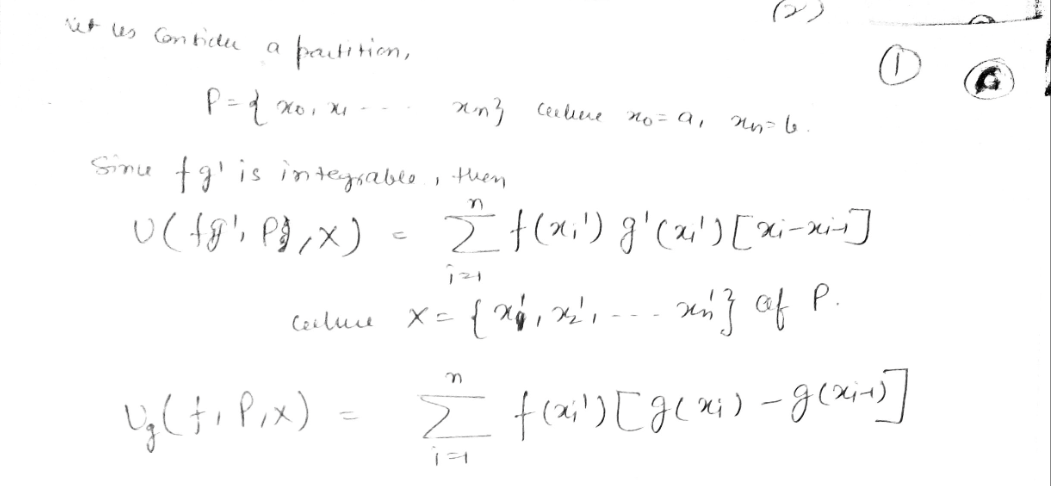 (2)
①
Let us consider a partition,
P = { x₀, x₁ - - - xₙ } where x₀ = a, xₙ = b.
Since fg' is integrable, then
U(fg', P, X) = ∑ⁿᵢ₌₁ f(xᵢ') g'(xᵢ') [xᵢ - xᵢ₋₁]
where X = { x₁', x₂', - - - xₙ' } of P.
U_g(f, P, X) = ∑ⁿᵢ₌₁ f(xᵢ') [g(xᵢ) - g(xᵢ₋₁)]